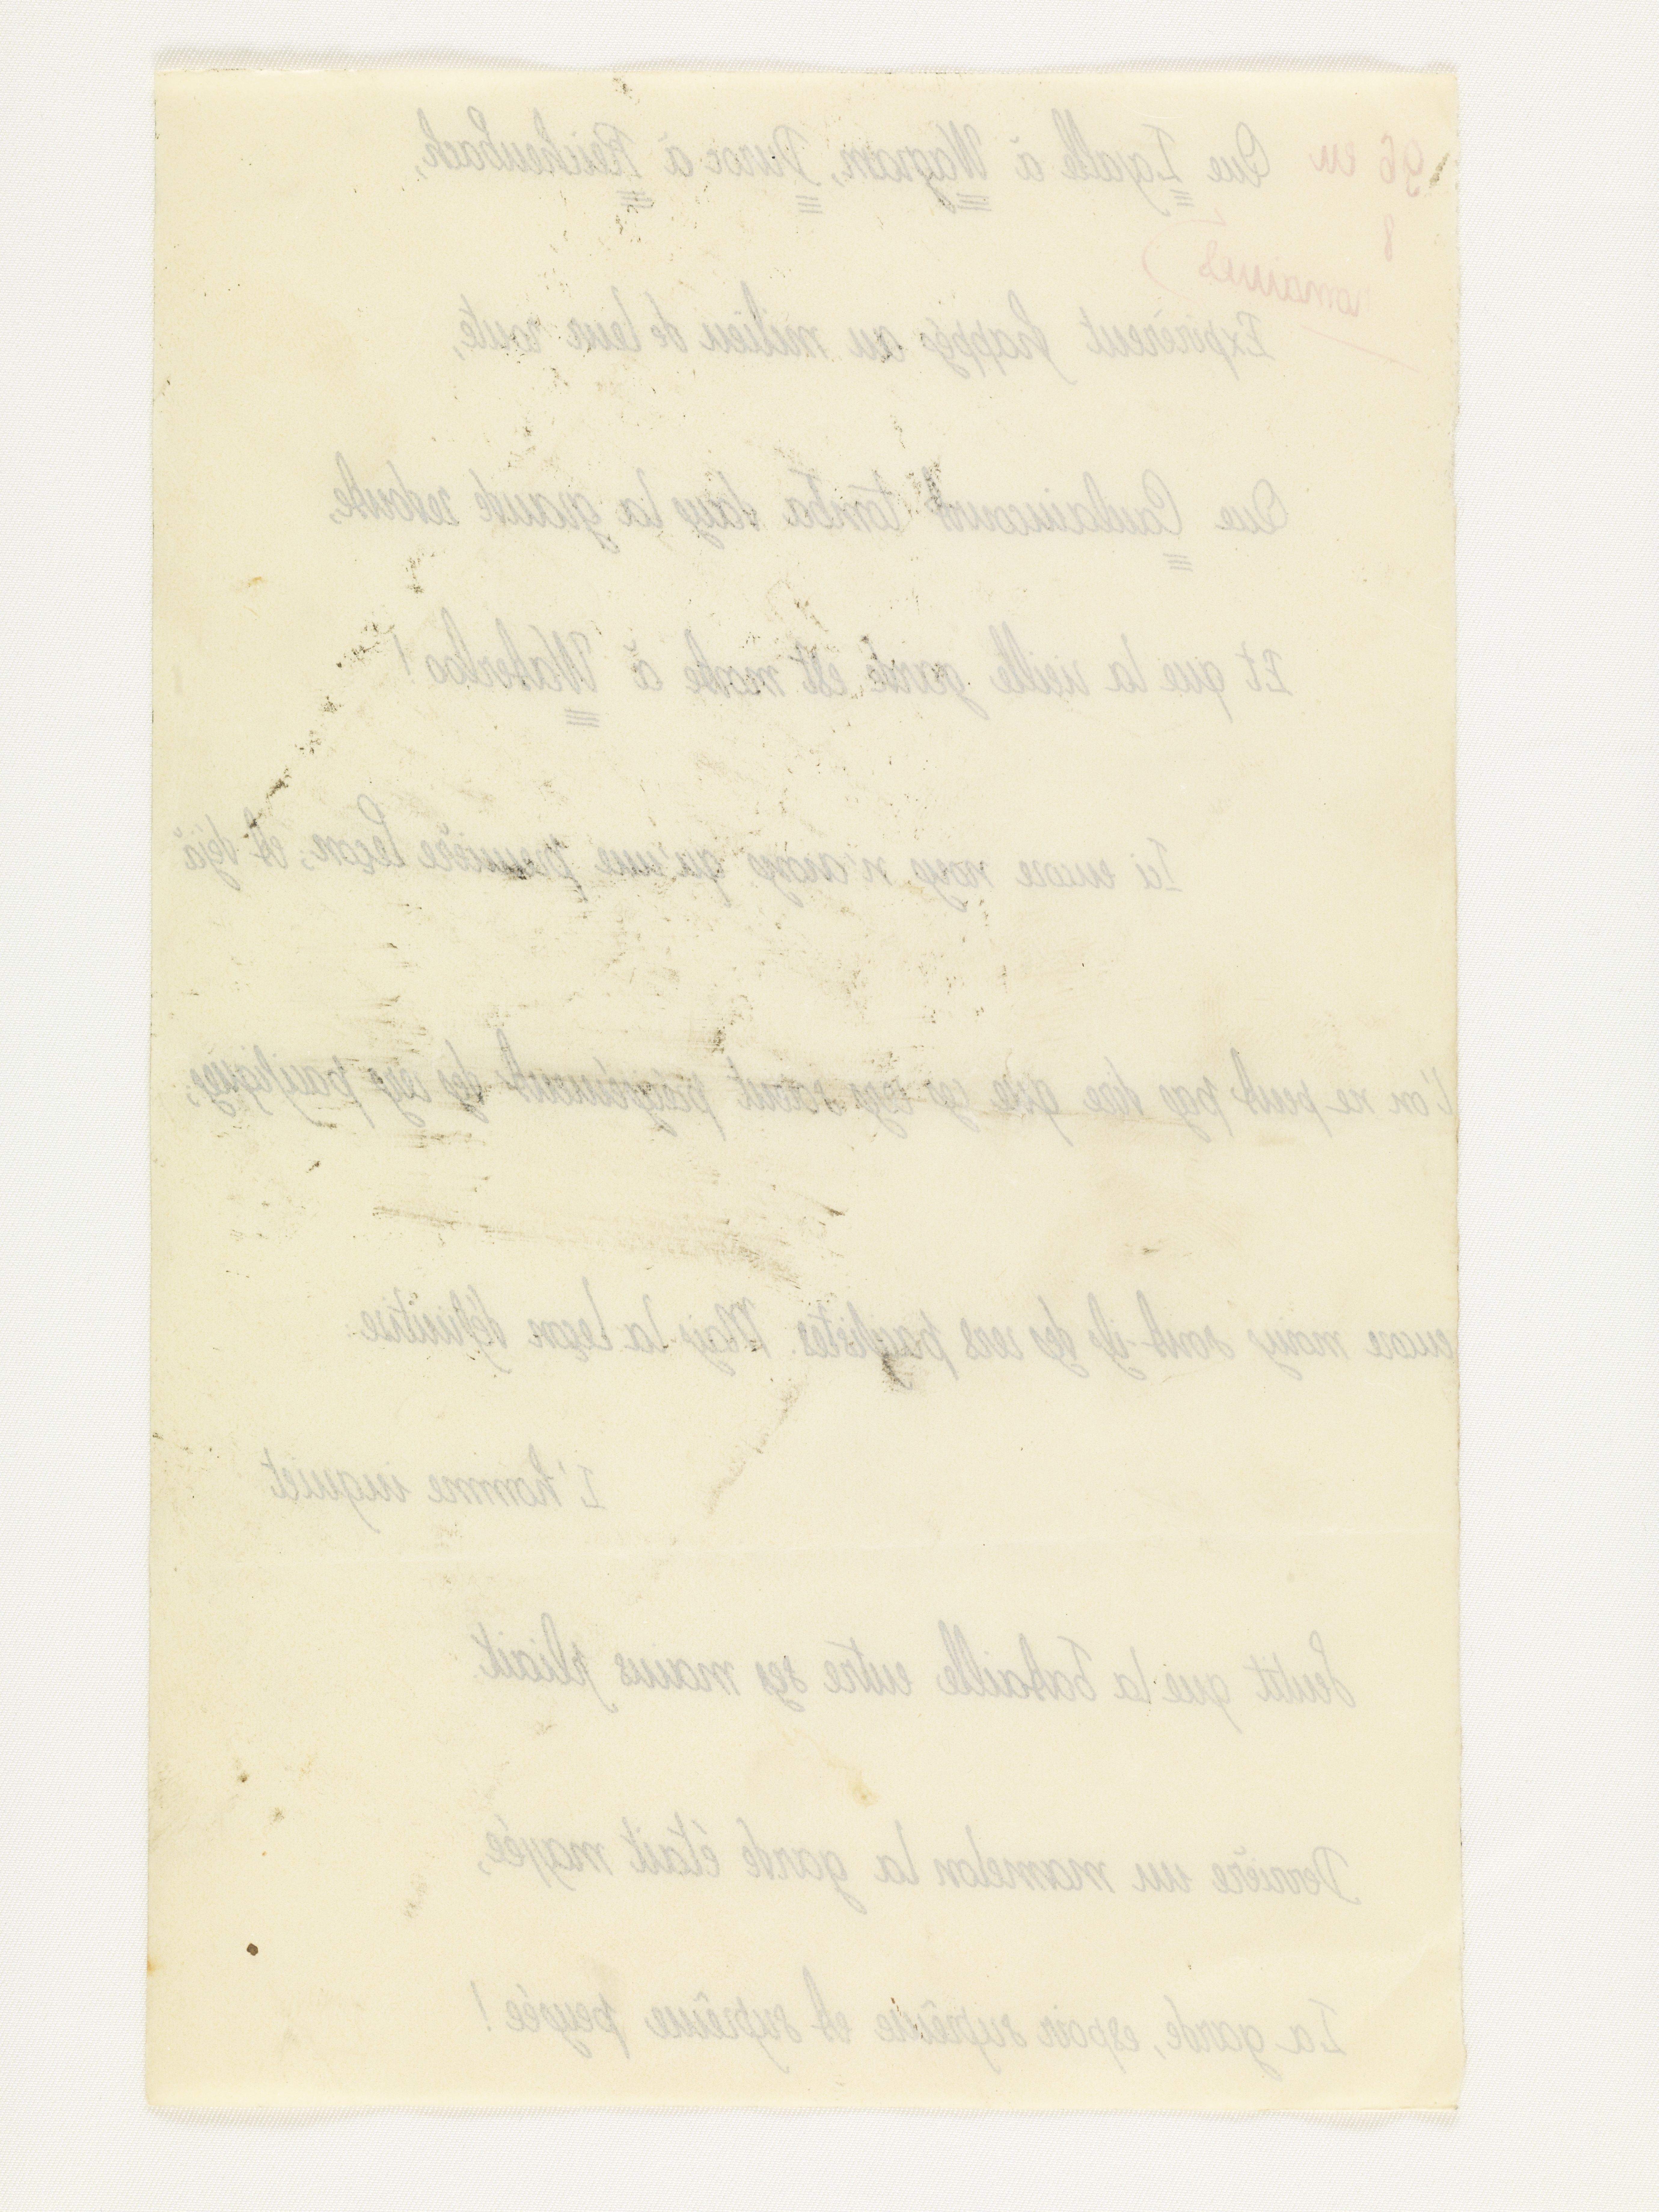 96 en
8
romaines
Que Lasalle à Wagram, Duroc à Reichenbach,
Expirèrent frappés au milieu de leur route,
Que Caulaincourt tomba dans la grande redoute,
Et que la vieille garde est morte à Waterloo !
Ici encore nous n'avons qu'une première leçon, et déjà
l'on ne peut pas dire que ces vers soient proprement des vers pacifiques,
encore moins sont-ils des vers pacifistes. Mais la leçon définitive
L'homme inquiet
Sentit que la bataille entre ses mains pliait.
Derrière un mamelon la garde était massée,
La garde, espoir suprême et suprême pensée !